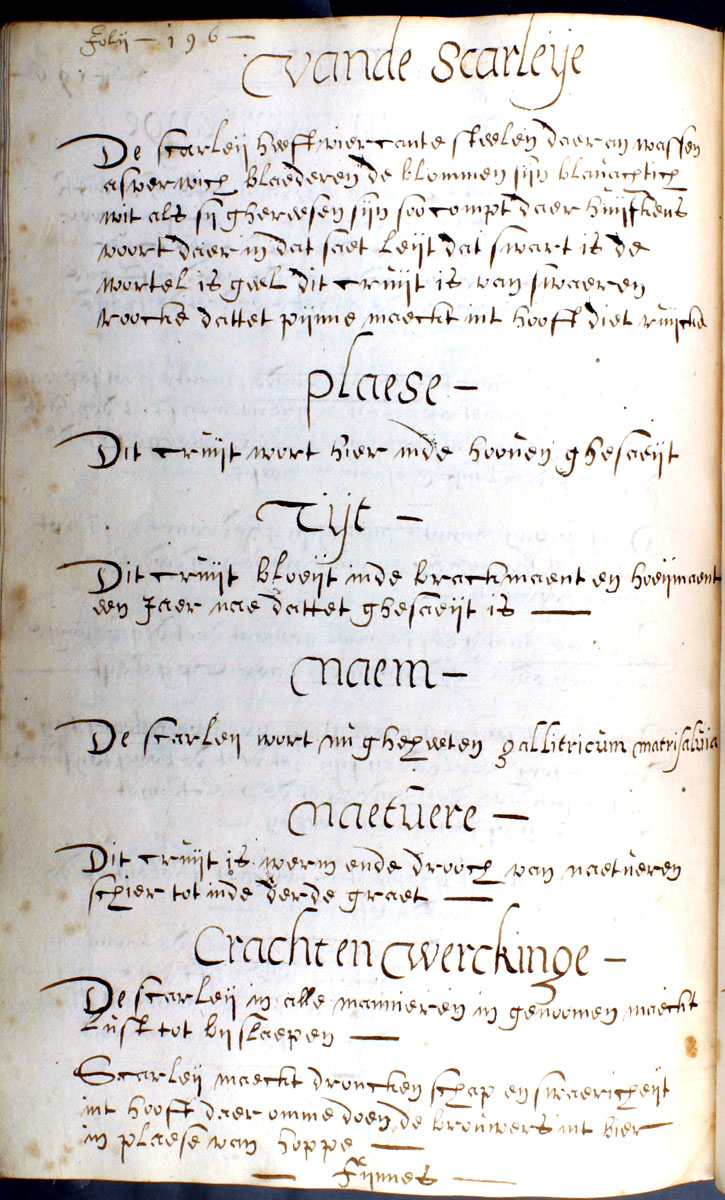 Folij — 196 —
vande scarleije
De scarleij heeft viercante steelen daer an wassen
asverwich blaederen de blommen sijn blauachtich
wit als sij gheweesen sijn soo compt daer huijskens
voort daer in dat saet leijt dat swart is de
wortel is geel dit cruijt is van swaeren
roocke dattet pijnne maeckt int hooft diet ruijcke
plaese —
Dit cruijt wort hier inde hooven ghesaeijt
Tijt —
Dit cruijt bloeijt inde brackmaent en hoeijmaent
een Jaer nae dattet ghesaeijt is —
naem —
De scarleij wort nu gheheeten gallitricum matrisalvia
naetuere —
Dit cruijt is werm ende drooch van naetueren
schier tot inde derde graet —
Cracht en werckinge —
De scarleij in alle mannieren in genoomen maeckt
lust tot bij slaepen —
Scarleij maeckt droncken schap en swaericheijt
int hooft daer omme doen de brouwers int bier
in plaese van hoppe —
— Fijnnes —